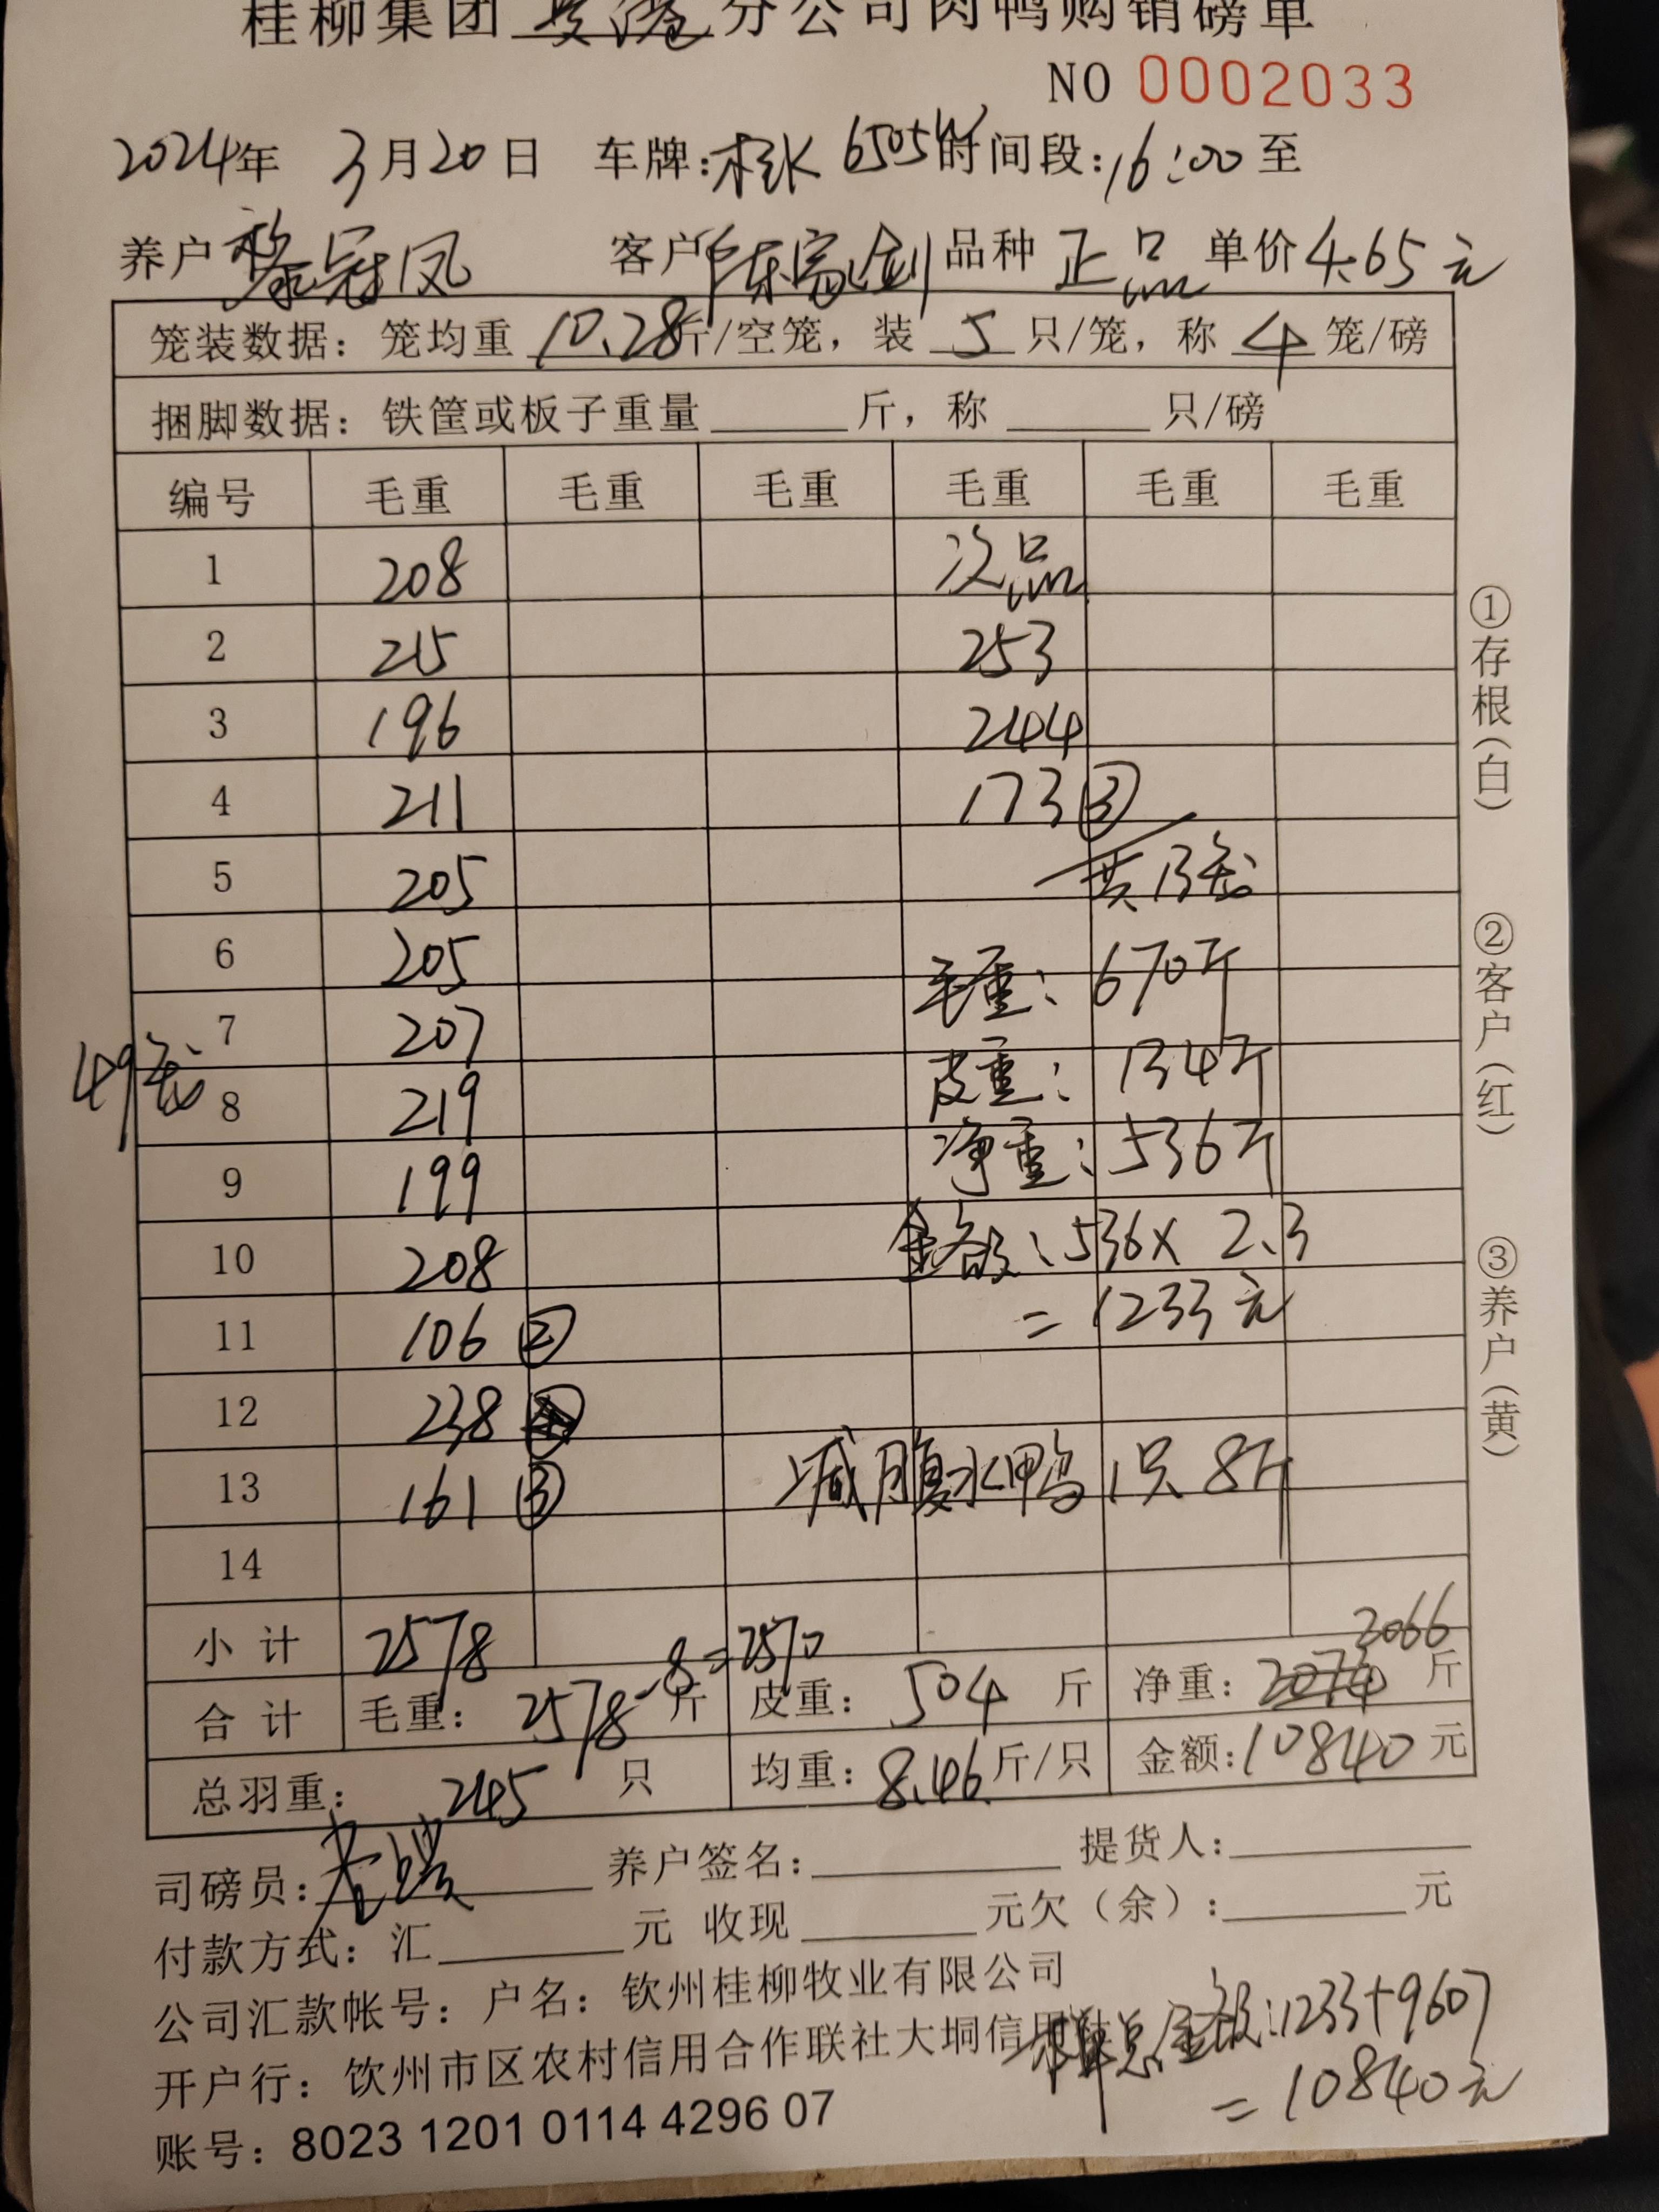 桂柳集团 灵港 分公司肉鸭购销磅单
NO 0002033
2024年 3月20日 车牌:桂K 6505W 时间段:16:00至
养户 黎冠凤 客户 陈富剑 品种 正品 单价4.65元
笼装数据: 笼均重 10.28斤/空笼, 装 5 只/笼, 称 4 笼/磅
捆脚数据: 铁筐或板子重量 斤, 称 只/磅
编号 毛重 毛重 毛重 毛重 毛重 毛重
1 208 次品
2 215 253
3 196 244
4 211 173 ③
5 205 共13笼
6 205 毛重: 670斤
7 207 皮重: 134斤
49笼
8 219 净重: 536斤
9 199
10 208 金额:536× 2.3
11 106 ② =1233元
12 238
13 161 ③ 减腹水鸭1只 8斤
14
小计 2578 -8=2570 2066
合计 毛重: 2578斤 皮重: 504 斤 净重: 2074 斤
总羽重: 245 只 均重: 8.46斤/只 金额:10840元
司磅员: 养户签名: 提货人:
付款方式: 汇 元 收现 元欠(余): 元
公司汇款帐号: 户名: 钦州桂柳牧业有限公司
开户行: 钦州市区农村信用合作联社大垌信用社
总金额:1233+9607
=10840元
账号: 8023 1201 0114 4296 07
①存根(白)
②客户(红)
③养户(黄)